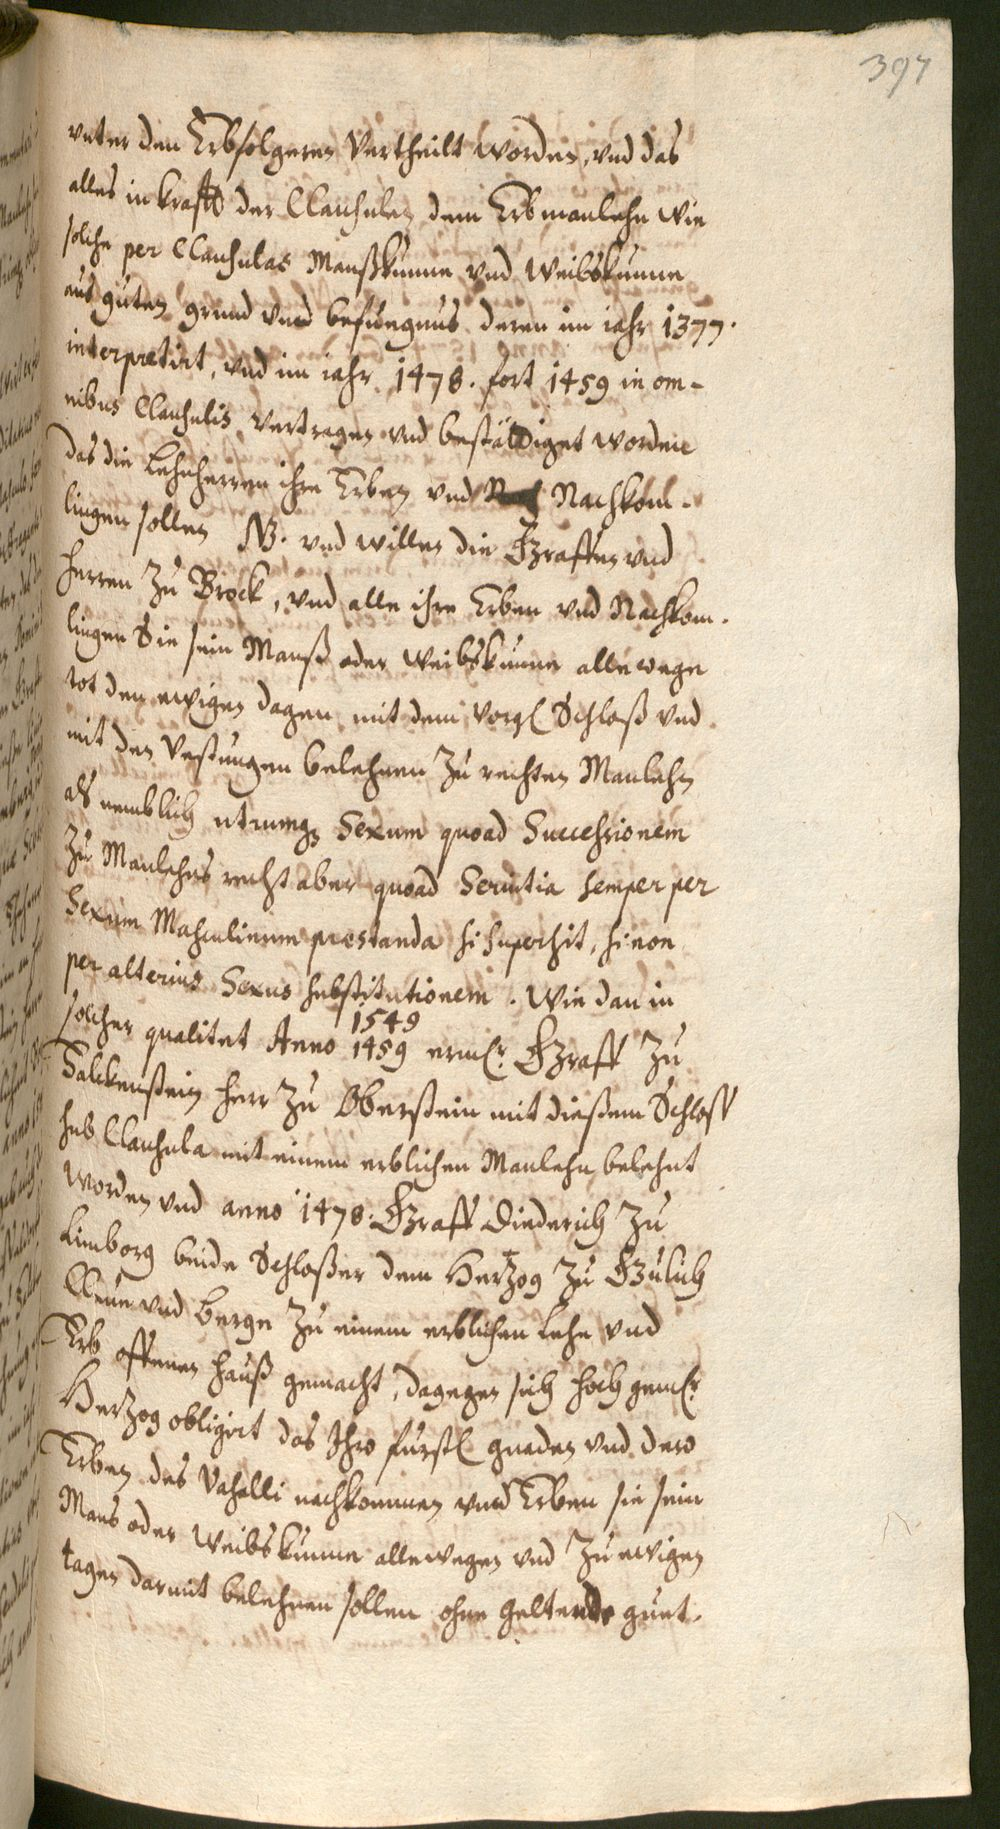 397
vnter den Erbfolgeren Vertheilt worden, vnd das
alles in krafft der Clausulen dem Erbmanlehn wie
solche per Clausulas Manßkunne vnd Weibskunne
aus guten grund vnd befuegnus deren im iahr 1377.
interpretirt, vnd im iahr 1478. fort 1459 in om-
nibus Clausulis Vertragen vnd bestättiget worden
das die Lehnherren ihre Erben vnd Nachkom-
lingen sollen NB. vnd willen die Graffen vnd
Herren Zu Brock, vnd alle ihre Erben vnd Nachkom-
lingen Sie sein Manß oder Weibskunne allewege
tot den ewigen dagen mit dem vorgl Schloß vnd
mit den Vestungen belehnen Zu rechten Manlehn
als nemblich utrumq Sexum quoad Successionem
Zu Manlehns recht aber quoad Seruitia semper per
Sexum Masculinum praestanda si supersit, si non
per alterius Sexus substitutionem. Wie dan in
1549
solcher qualitet Anno 1459 ermlr Graff Zu
Falckenstein Herr Zu Oberstein mit dießem Schloss
sub Clausula mit einem erblichen Manlehn belehnt
worden vnd anno 1478. Graff Diederich Zu
Limborg beide Schloßer dem Hertzog Zu Gulich
Cleue vnd Berge Zu einem erblichen Lehn vnd
Erb offenen Hauß gemacht, dagegen sich hoch gemlr
Hertzog obligirt das Ihro furstl gnaden vnd dero
Erben des Vasalli nachkommen vnd Erben sie sein
Mans oder Weibskunne allewegen vnd Zu ewigen
tagen darmit belehnen sollen ohne geltende guet.